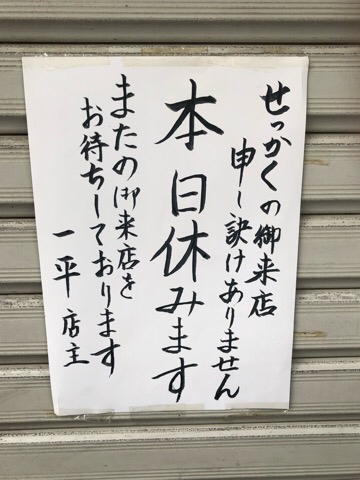 せっかくの御来店
申し訳けありません
本日休みます
またの御来店を
お待ちしております
一平店主